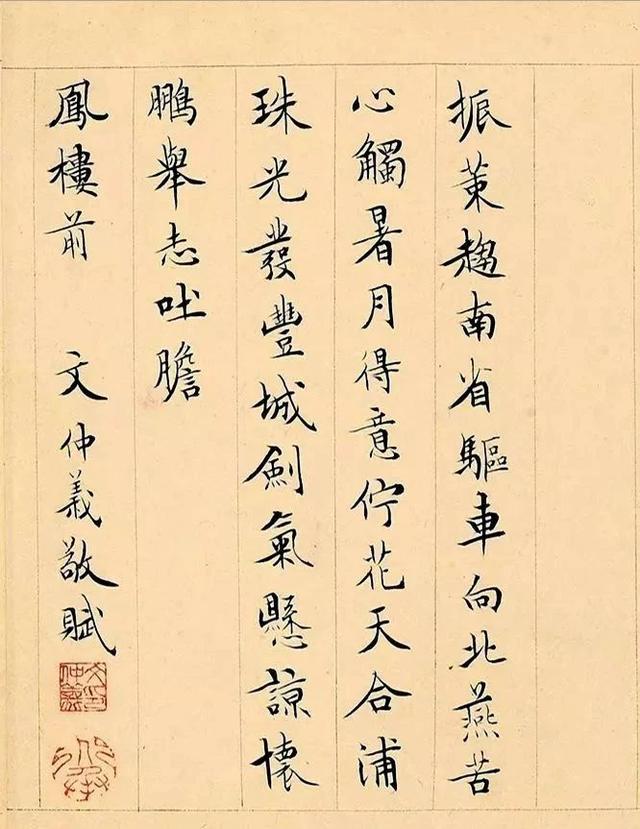 振策趨南省驅車向北燕苦
心觸暑月得意佇花天合浦
珠光發豐城劍氣懸諒懷
鵬舉志吐膽
鳳樓前 文仲義敬賦
文仲義印